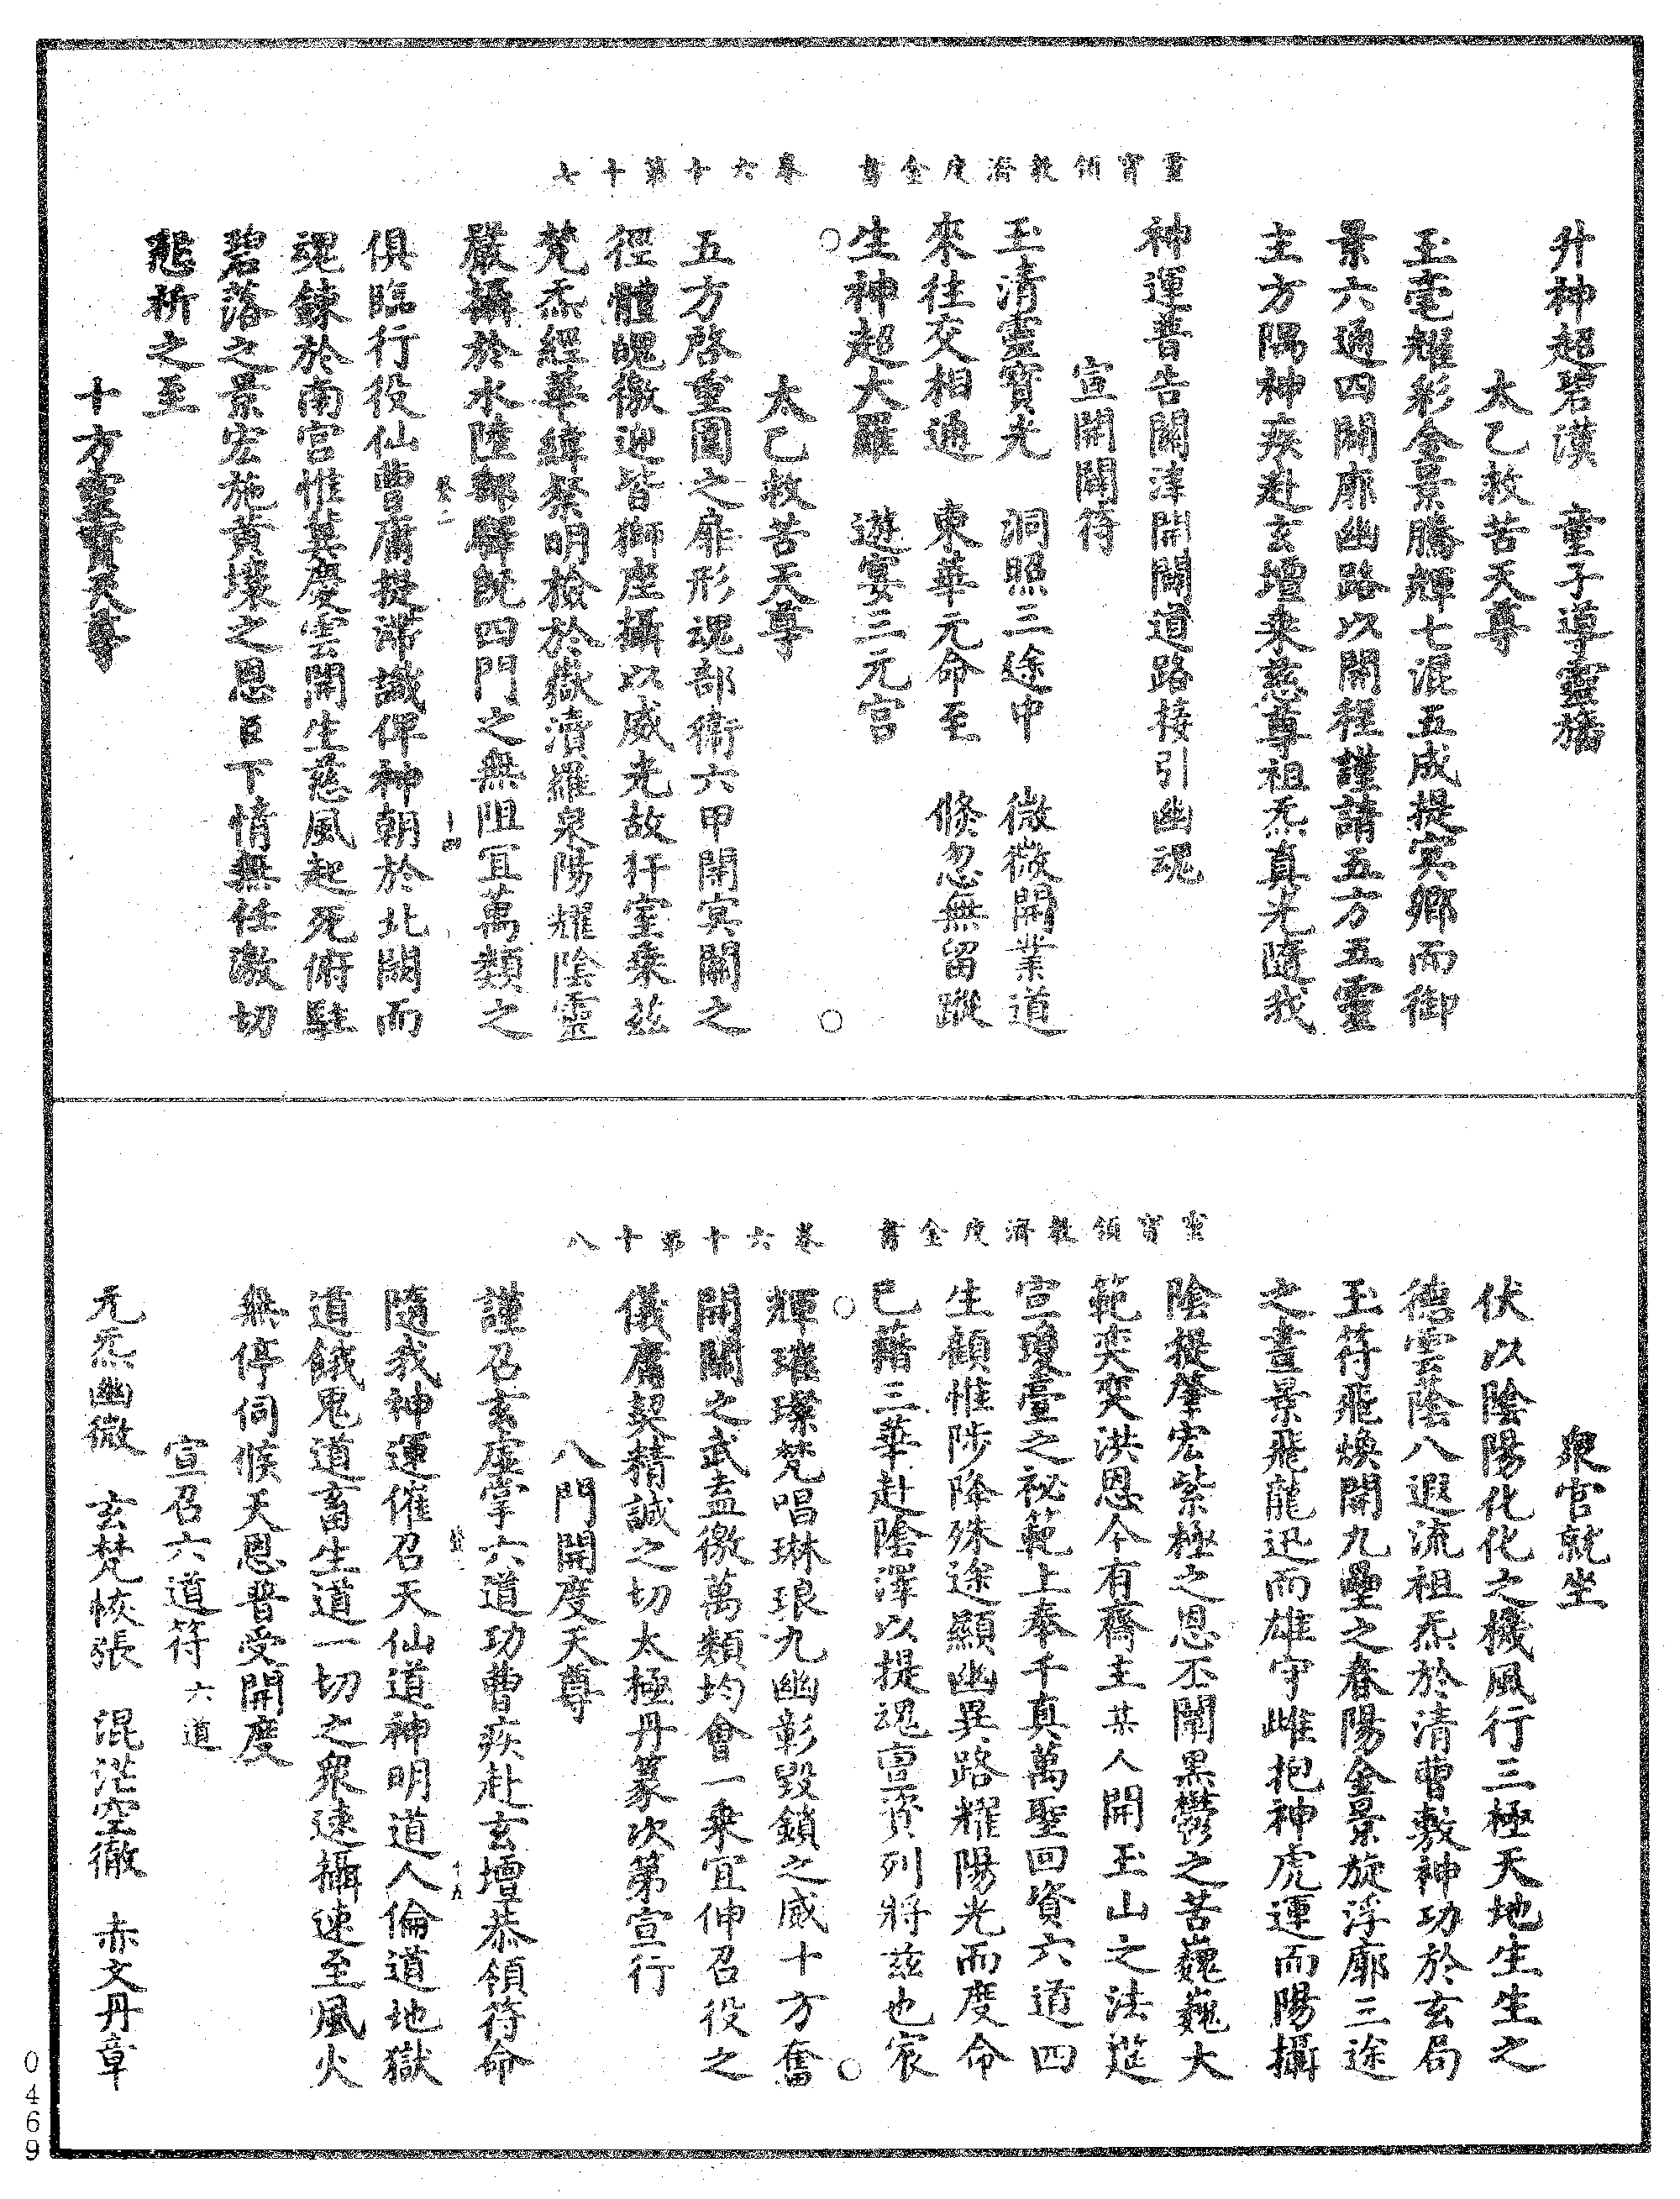 靈寶領教濟度金書　卷六十　第十七
升神超碧漢　童子導靈旛
太乙救苦天尊
玉毫耀彩金景騰輝七混五成提冥鄉而御
景六通四闢廓幽路以開程謹請五方五靈
主方隅神疾赴玄壇来慈尊祖炁真光隨我
神運普告關津開闢道路接引幽魂
宣開闢符
玉清靈寶光　洞照三途中　微微開業道
來往交相通　東華元命至　倏忽無留蹤
生神超大羅　遊宴三元宮
太乙救苦天尊
五方啓重圍之扉形魂部衛六甲開冥關之
徑體魄徹迎皆獅座攝以威光故犴室乗茲
梵炁經華緯粲明檢於嶽清羅泉陽耀陰靈
嚴攝於水陸郵驛既四門之無阻宜萬類之
俱臨行役仙曹庸提滯識俾神朝於北闕而
魂鍊於南宮惟冀慶雲開生慈風起死俯駐
碧落之景宏施黄壤之恩臣下情無任激切
懇祈之至
十方靈寶天尊
靈寶領教濟度金書　卷六十　第十八
衆官就坐
伏以陰陽化化之機風行三極天地生生之
德雲蔭八遐流祖炁於清曹敷神功於玄局
玉符飛煥開九壘之春陽金景旋浮廓三途
之晝景飛龍迅而雄守雌抱神虎運而陽攝
陰提肇宏紫極之恩丕闡黒欝之苦巍巍大
範奕奕洪恩今有齋主某人開玉山之法筵
宣瓊臺之祕範上奉千真萬聖回資六道四
生顧惟陟降殊途顯幽異路耀陽光而度命
已藉三華赴陰澤以提魂亶資列將茲也宸
輝璀璨梵唱琳琅九幽彰毀鎖之威十方奮
開關之武盍徹萬類均會一乗宜伸召役之
儀庸契精誠之切太極丹篆次第宣行
八門開度天尊
謹召玄虛掌六道功曹疾赴玄壇恭領符命
隨我神運催召天仙道神明道人倫道地獄
道餓鬼道畜生道一切之衆速攝速至風火
無停伺候天恩普受開度
宣召六道符六道
元炁幽微　玄梵恢張　混茫空徹　赤文丹章
0469